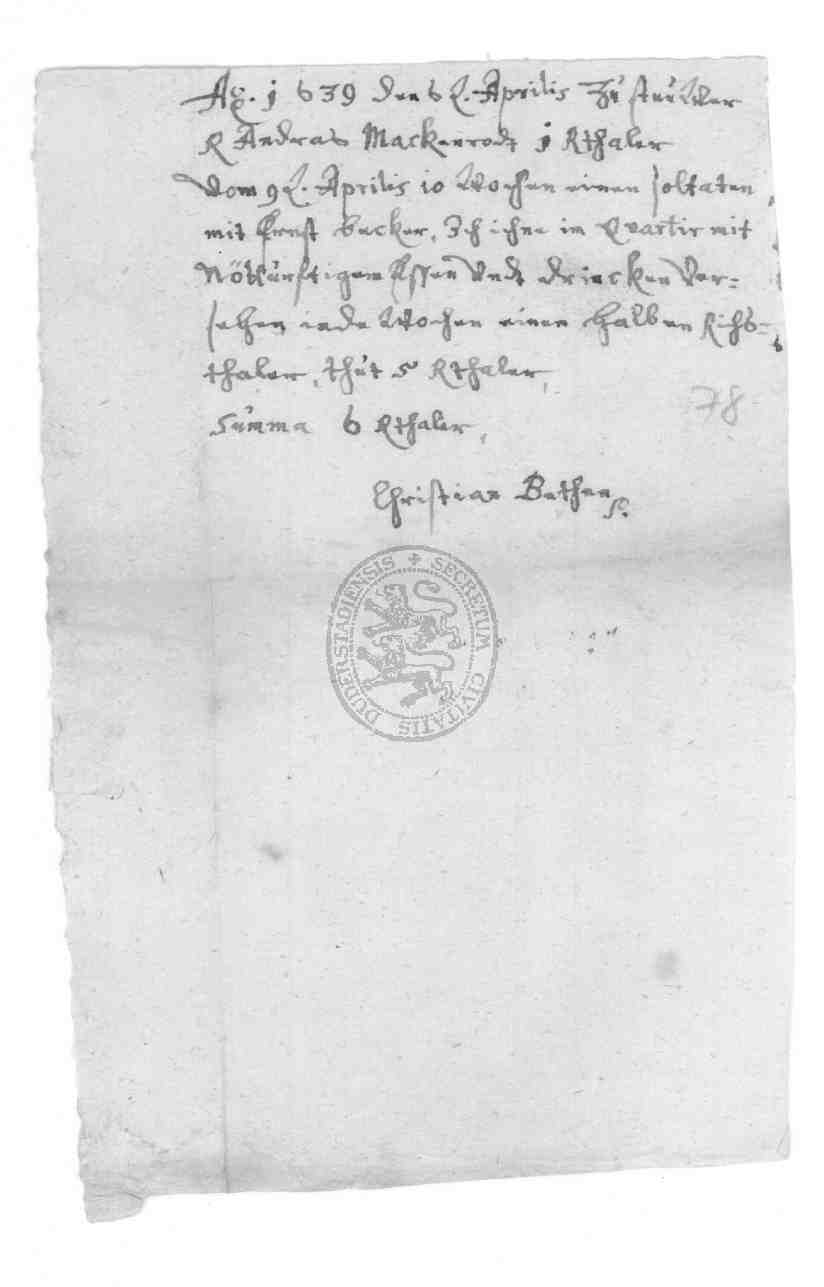 Ao. 1639 den 6 L. Aprilis Zu
R Andreas Mackenrodt 1 Rthaler
Vom 9 L. Aprilis 10 Wochen einen soltaten
mit Ernst becker, Ich ichne im Quartir mit
Nötturftigem Essen Undt drincken Ver=
sehen iede Wochen einen halben Richs=
thaler, thut 5 Rthaler,
Summa 6 Rthaler,
78
Christian Bethen
SECRETUM CIVITATIS DUDERSTADIENSIS